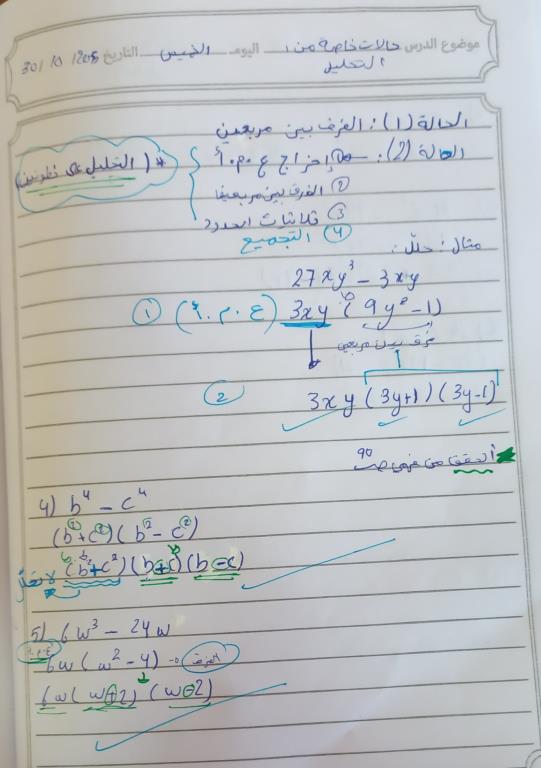 موضوع الدرس حالات خاصة من اليوم الخميس التاريخ
التحليل
الحالة (1): الفرق بين مربعين
الحالة (2): ① إخراج ع.م.أ
② الفرق بين مربعين
③ ثلاثيات الحدود
④ التجميع
* (التحليل على خطوتين)
مثال: حلل:
27xy³ − 3xy
① (ع.م.أ) 3xy (9y² − 1)
فرق بين مربعين
② 3xy (3y+1) (3y−1)
التحقق من فهمي ص 90
4) b⁴ − c⁴
(b² + c²) (b² − c²)
(b² + c²) (b + c) (b − c)
لا تحلل
5) 6w³ − 24w
ع.م.أ
6w (w² − 4) الفرق
6w (w + 2) (w − 2)